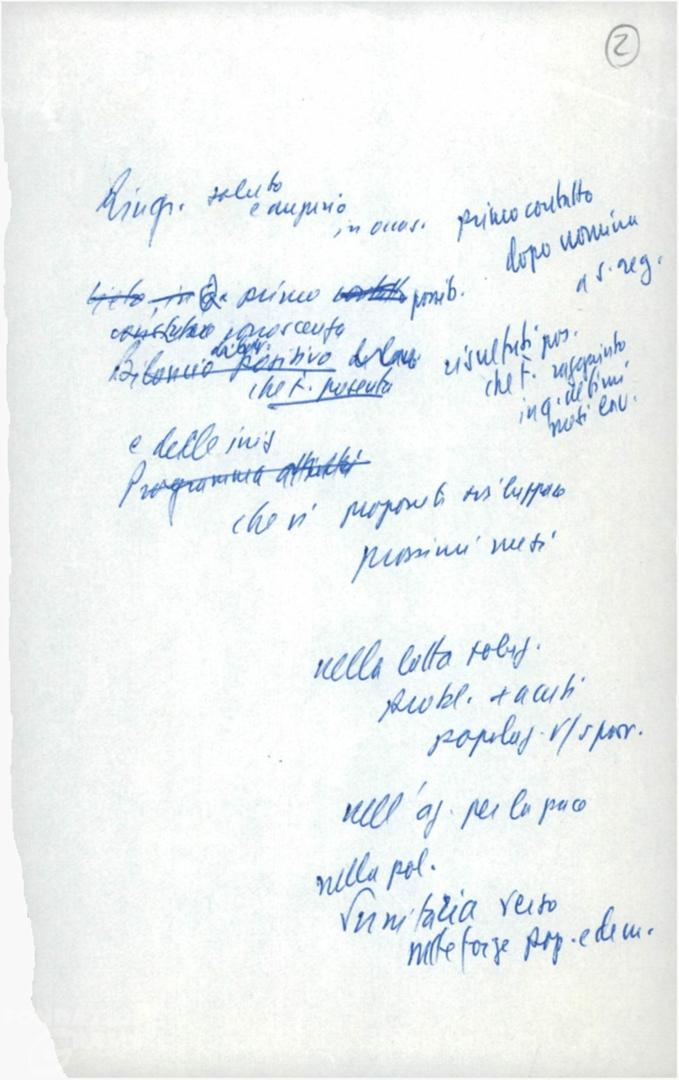 2
Ringr. saluto
e augurio
in occas. primo contatto
dopo nomina
a s. reg.
lieto, in primo contatto possib.
conoscenza
Bilancio positivo risultati pos.
che t. presenta che t. raggiunto
in q. ultimi
mesi
e delle iniz
Programma attività
che vi proponete sviluppare
prossimi mesi
nella lotta soluz.
probl. + acuti
popolaz. v/s prov.
nell'az. per la pace
nella pol.
unitaria verso
tutte forze pop. e dem.